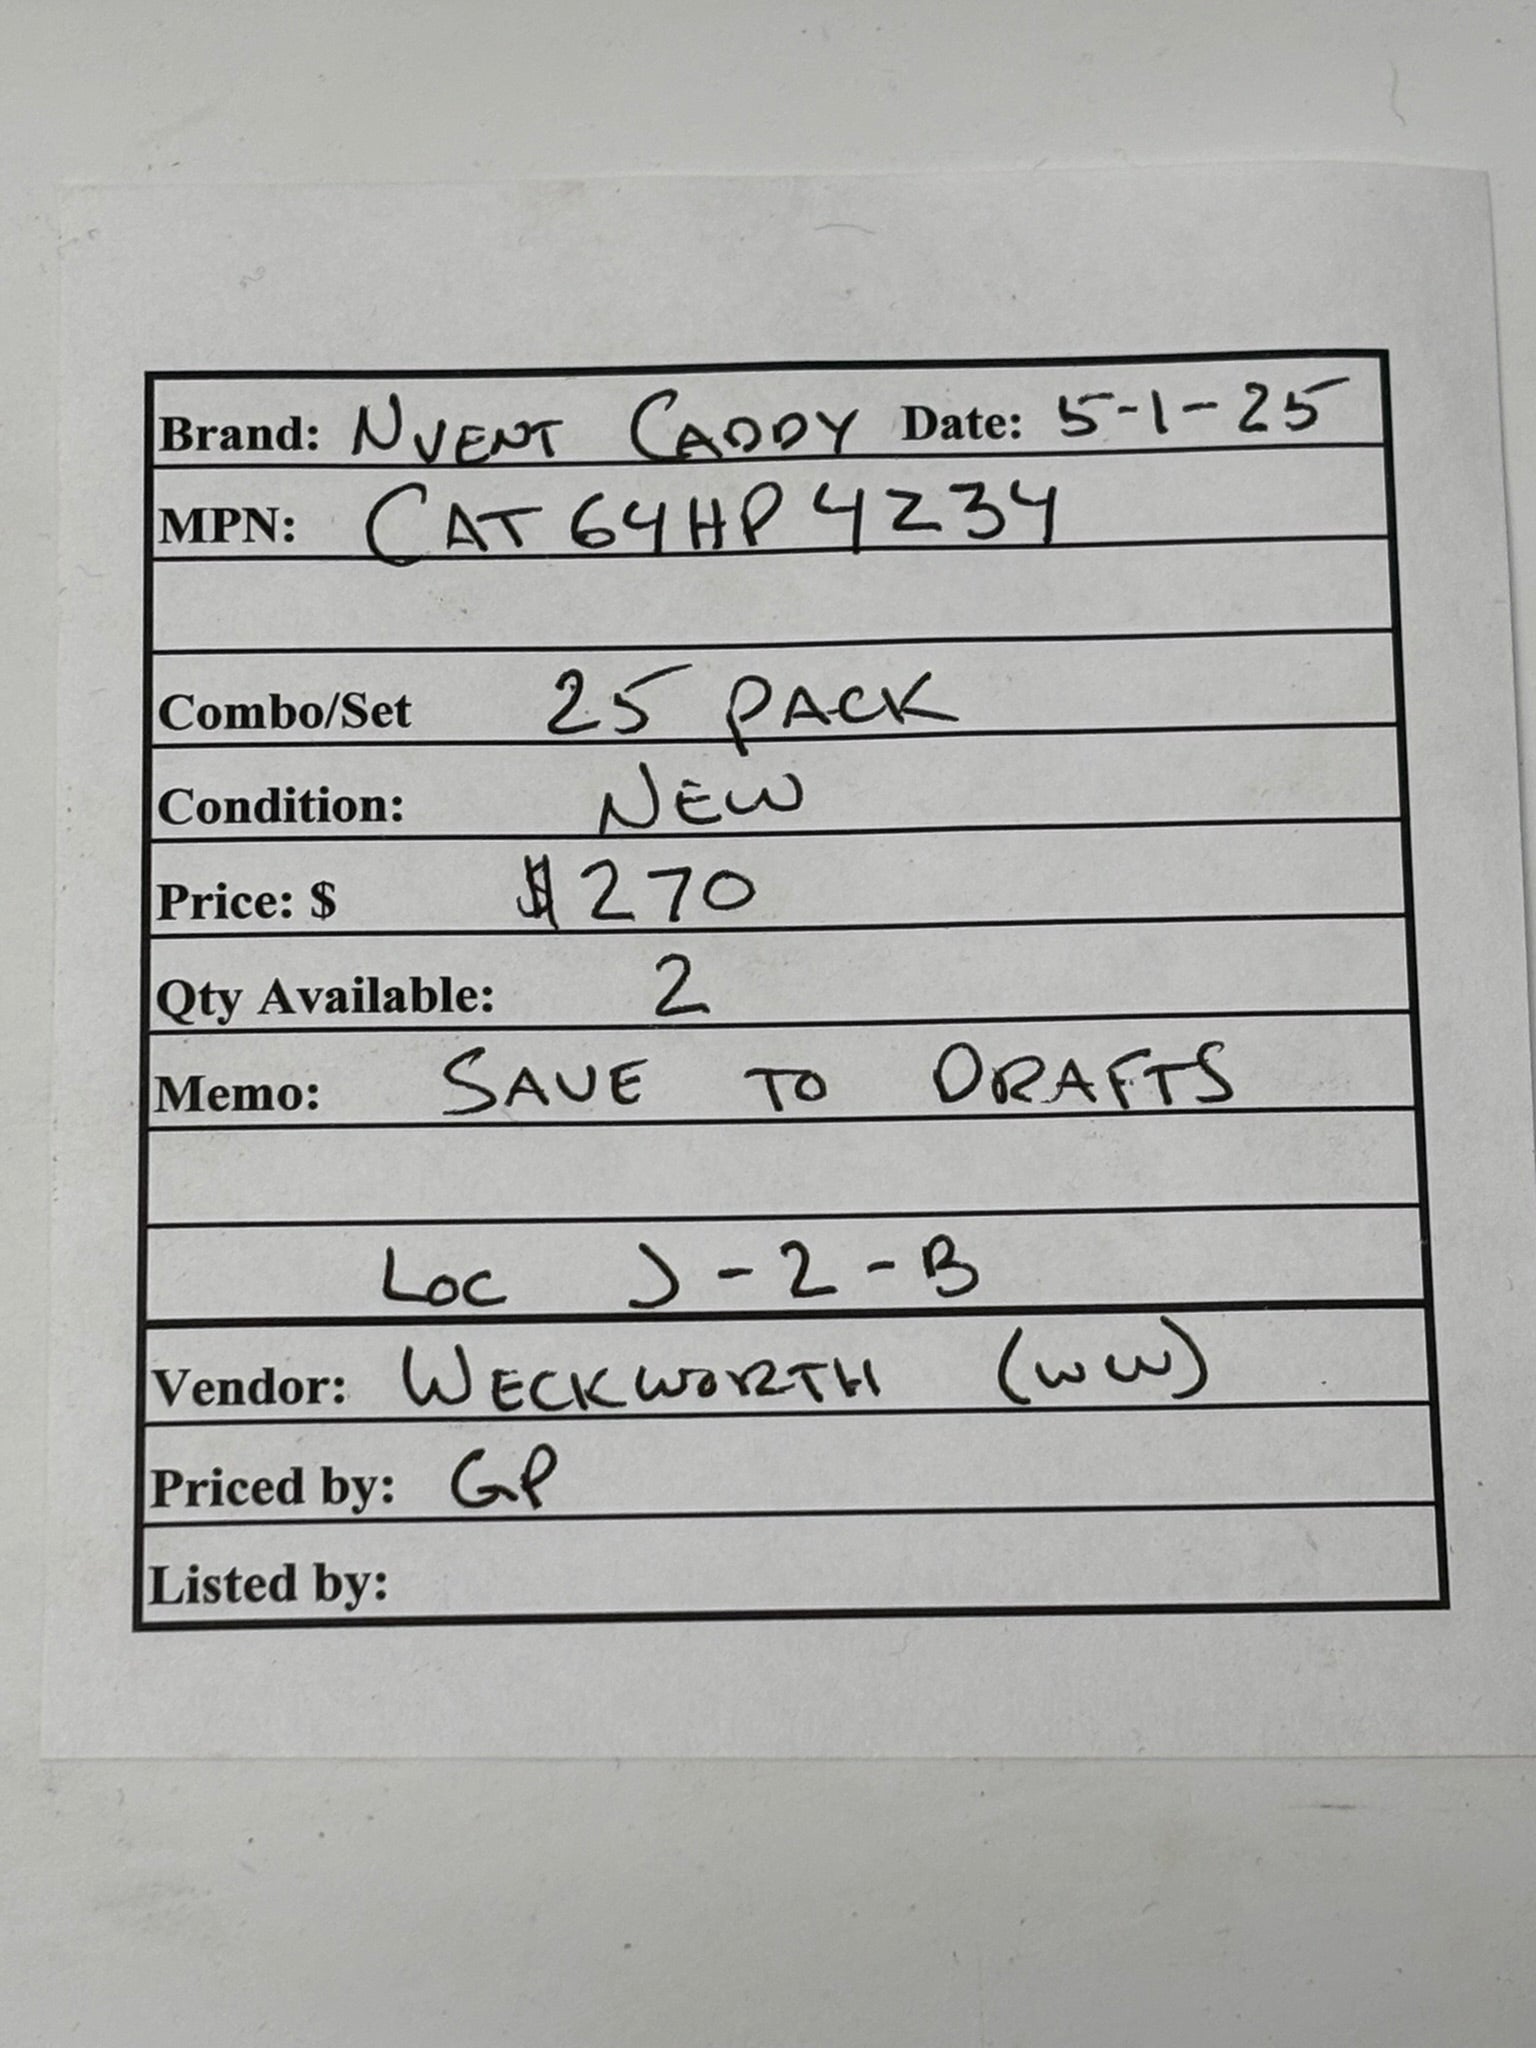 Brand: NVENT CADDY Date: 5-1-25
MPN: CAT64HP4Z34
Combo/Set 25 PACK
Condition: NEW
Price: $ $270
Qty Available: 2
Memo: SAVE TO DRAFTS
LOC J-2-B
Vendor: WECKWORTH (WW)
Priced by: GP
Listed by: